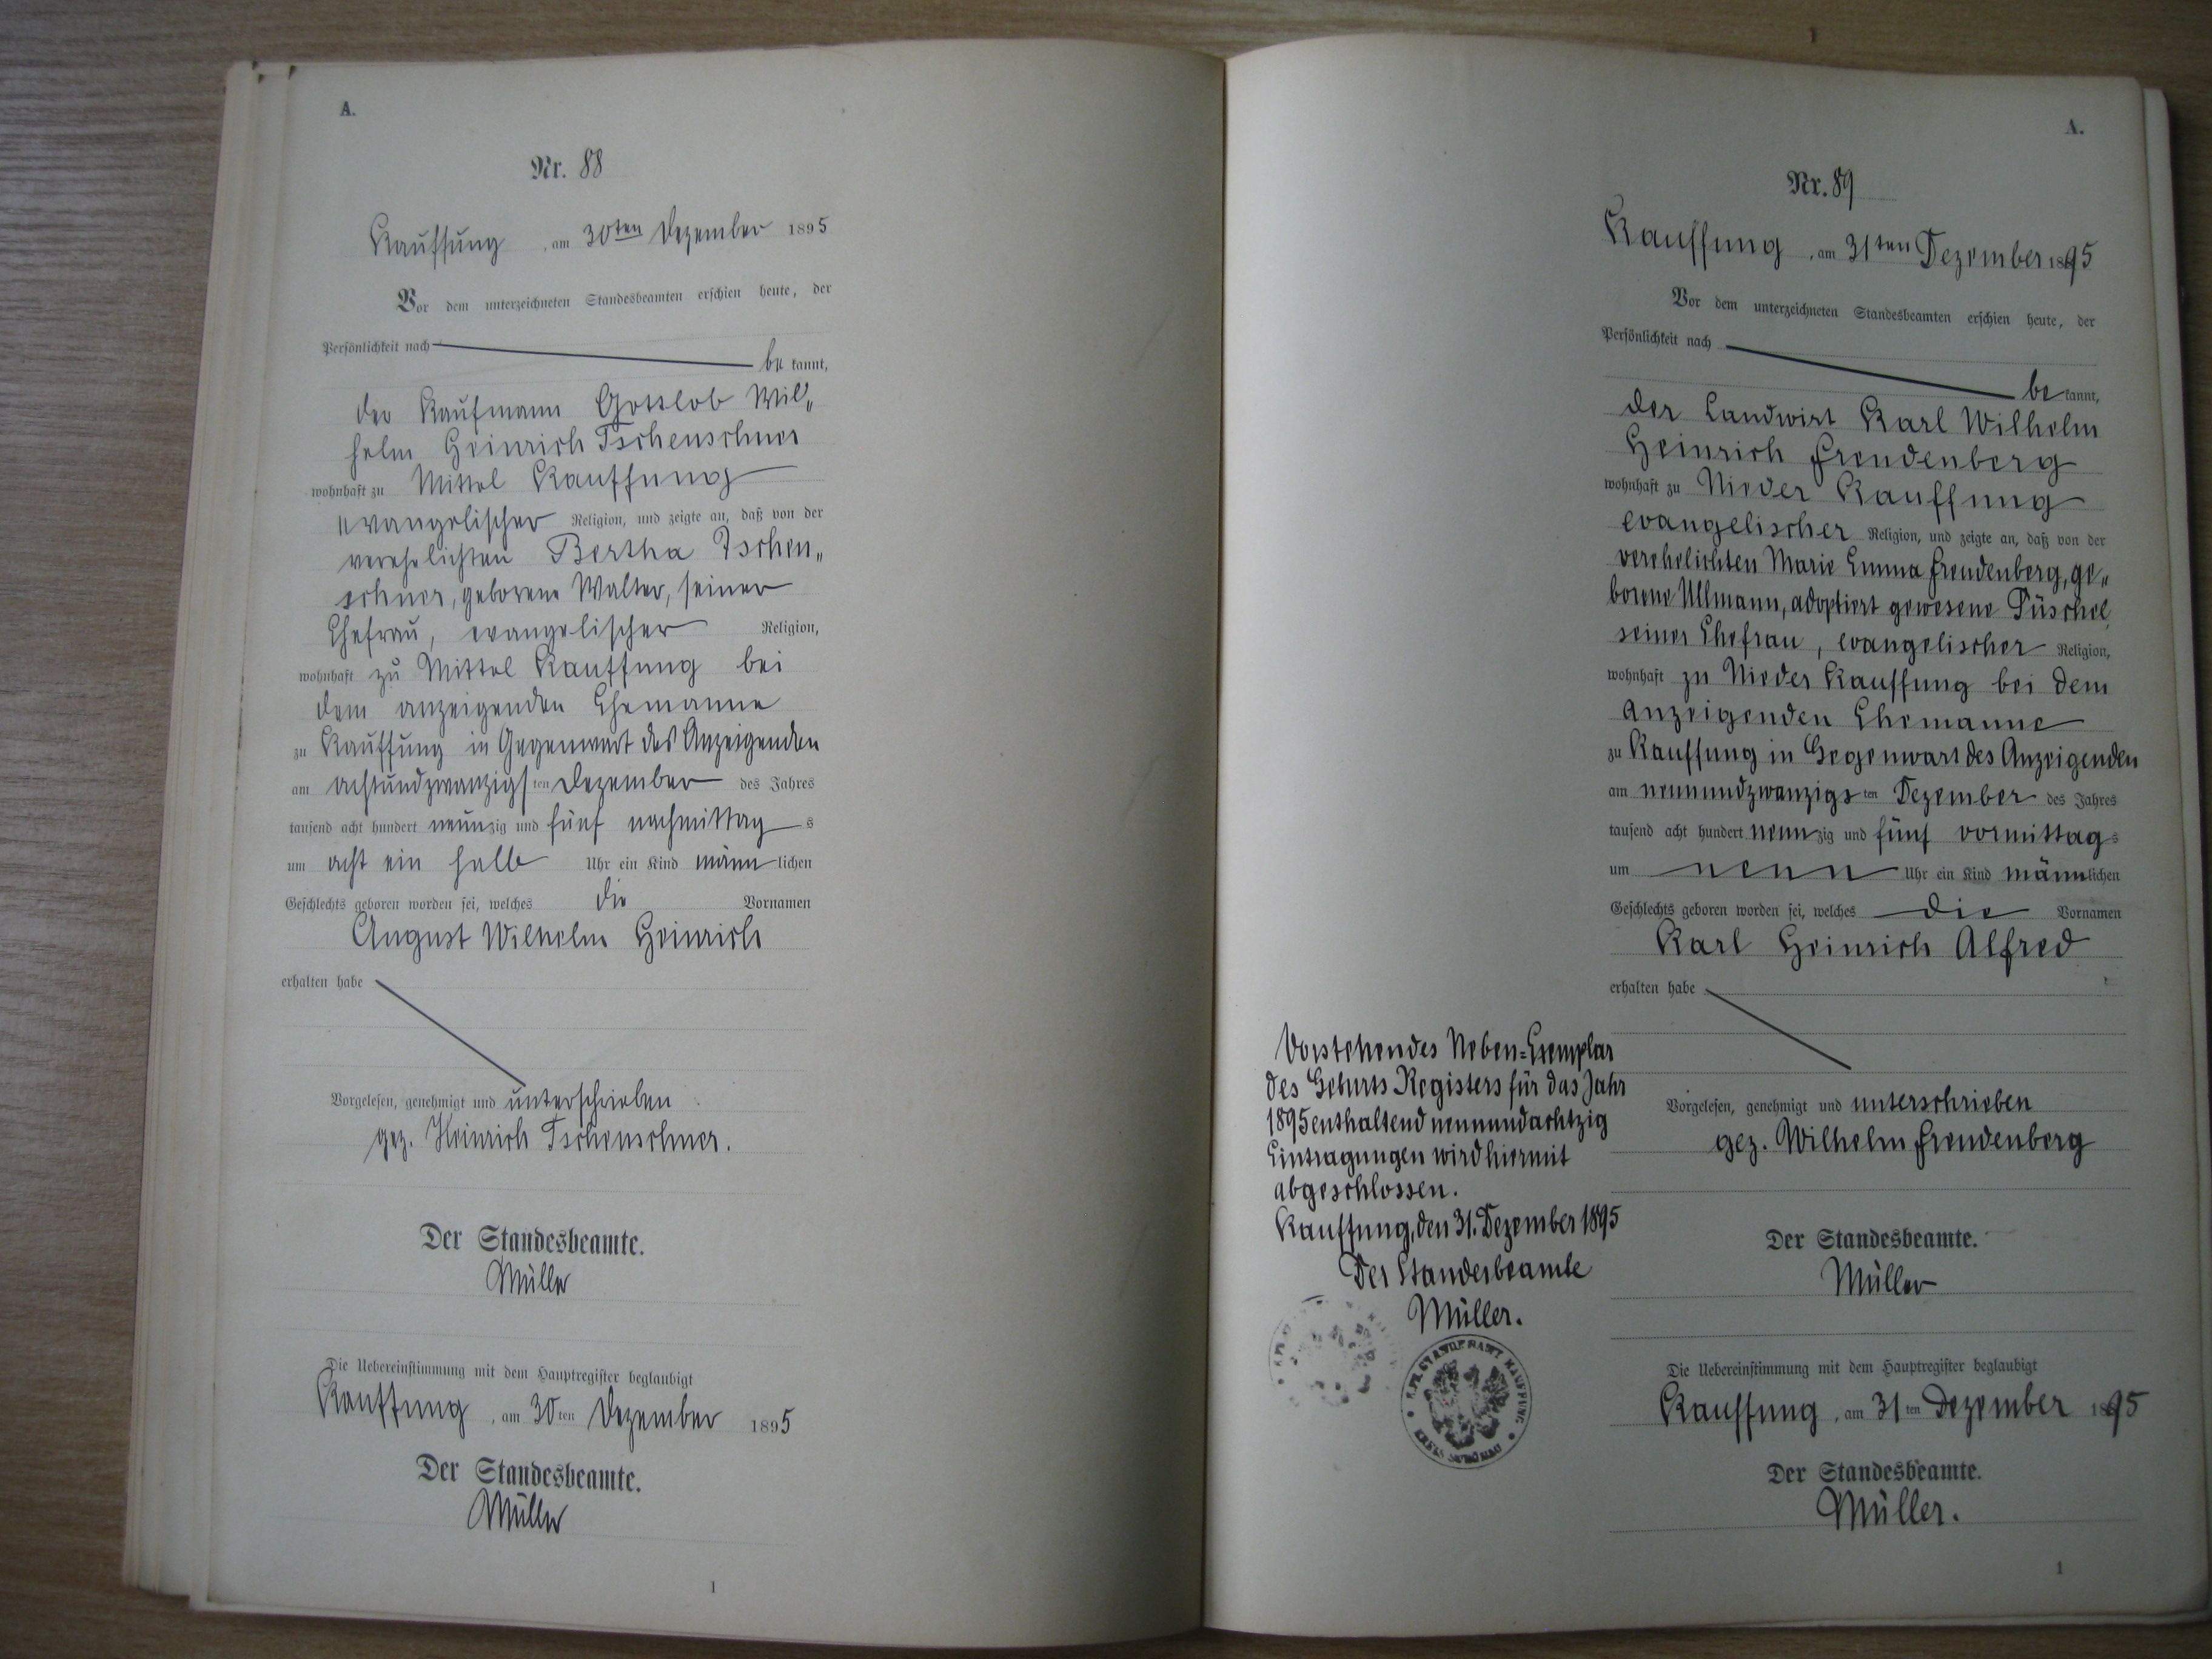 A.
Nr. 88
Kauffung, am 30ten Dezember 1895
Vor dem unterzeichneten Standesbeamten erschien heute, der
Persönlichkeit nach
be kannt,
der Kaufmann Gottlob Wil„
helm Heinrich Tschenschner
wohnhaft zu Mittel Kauffung
evangelischer Religion, und zeigte an, daß von der
verehelichten Bertha Tschen„
schner, geborene Walter, seiner
Ehefrau, evangelischer Religion,
wohnhaft zu Mittel Kauffung bei
dem anzeigenden Ehemanne
zu Kauffung in Gegenwart des Anzeigenden
am achtundzwanzigsten Dezember des Jahres
tausend acht hundert neunzig und fünf nachmittags
um acht ein halb Uhr ein Kind männlichen
Geschlechts geboren worden sei, welches die Vornamen
August Wilhelm Heinrich
erhalten habe
Vorgelesen, genehmigt und unterschrieben
gez. Heinrich Tschenschner.
Der Standesbeamte.
Müller
Die Uebereinstimmung mit dem Hauptregister beglaubigt
Kauffung, am 30ten Dezember 1895
Der Standesbeamte.
Müller
1
A.
Nr. 89
Kauffung, am 31ten Dezember 1895
Vor dem unterzeichneten Standesbeamten erschien heute, der
Persönlichkeit nach
be kannt,
der Landwirt Karl Wilhelm
Heinrich Freudenberg
wohnhaft zu Nieder Kauffung
evangelischer Religion, und zeigte an, daß von der
verehelichten Marie Emma Freudenberg, ge„
borene Ullmann, adoptiert gewesene Püschel,
seiner Ehefrau, evangelischer Religion,
wohnhaft zu Nieder Kauffung bei dem
anzeigenden Ehemanne
zu Kauffung in Gegenwart des Anzeigenden
am neunundzwanzigsten Dezember des Jahres
tausend acht hundert neunzig und fünf vormittags
um neun Uhr ein Kind männlichen
Geschlechts geboren worden sei, welches die Vornamen
Karl Heinrich Alfred
erhalten habe
Vorgelesen, genehmigt und unterschrieben
gez. Wilhelm Freudenberg
Der Standesbeamte.
Müller
Die Uebereinstimmung mit dem Hauptregister beglaubigt
Kauffung, am 31ten Dezember 1895
Der Standesbeamte.
Müller.
1
Vorstehendes Neben=Exemplar
des Geburts Registers für das Jahr
1895 enthaltend neunundachtzig
Eintragungen wird hiermit
abgeschlossen.
Kauffung, den 31. Dezember 1895
Der Standesbeamte
Müller.
K. PR. STANDESAMT KAUFFUNG
KREIS SCHÖNAU